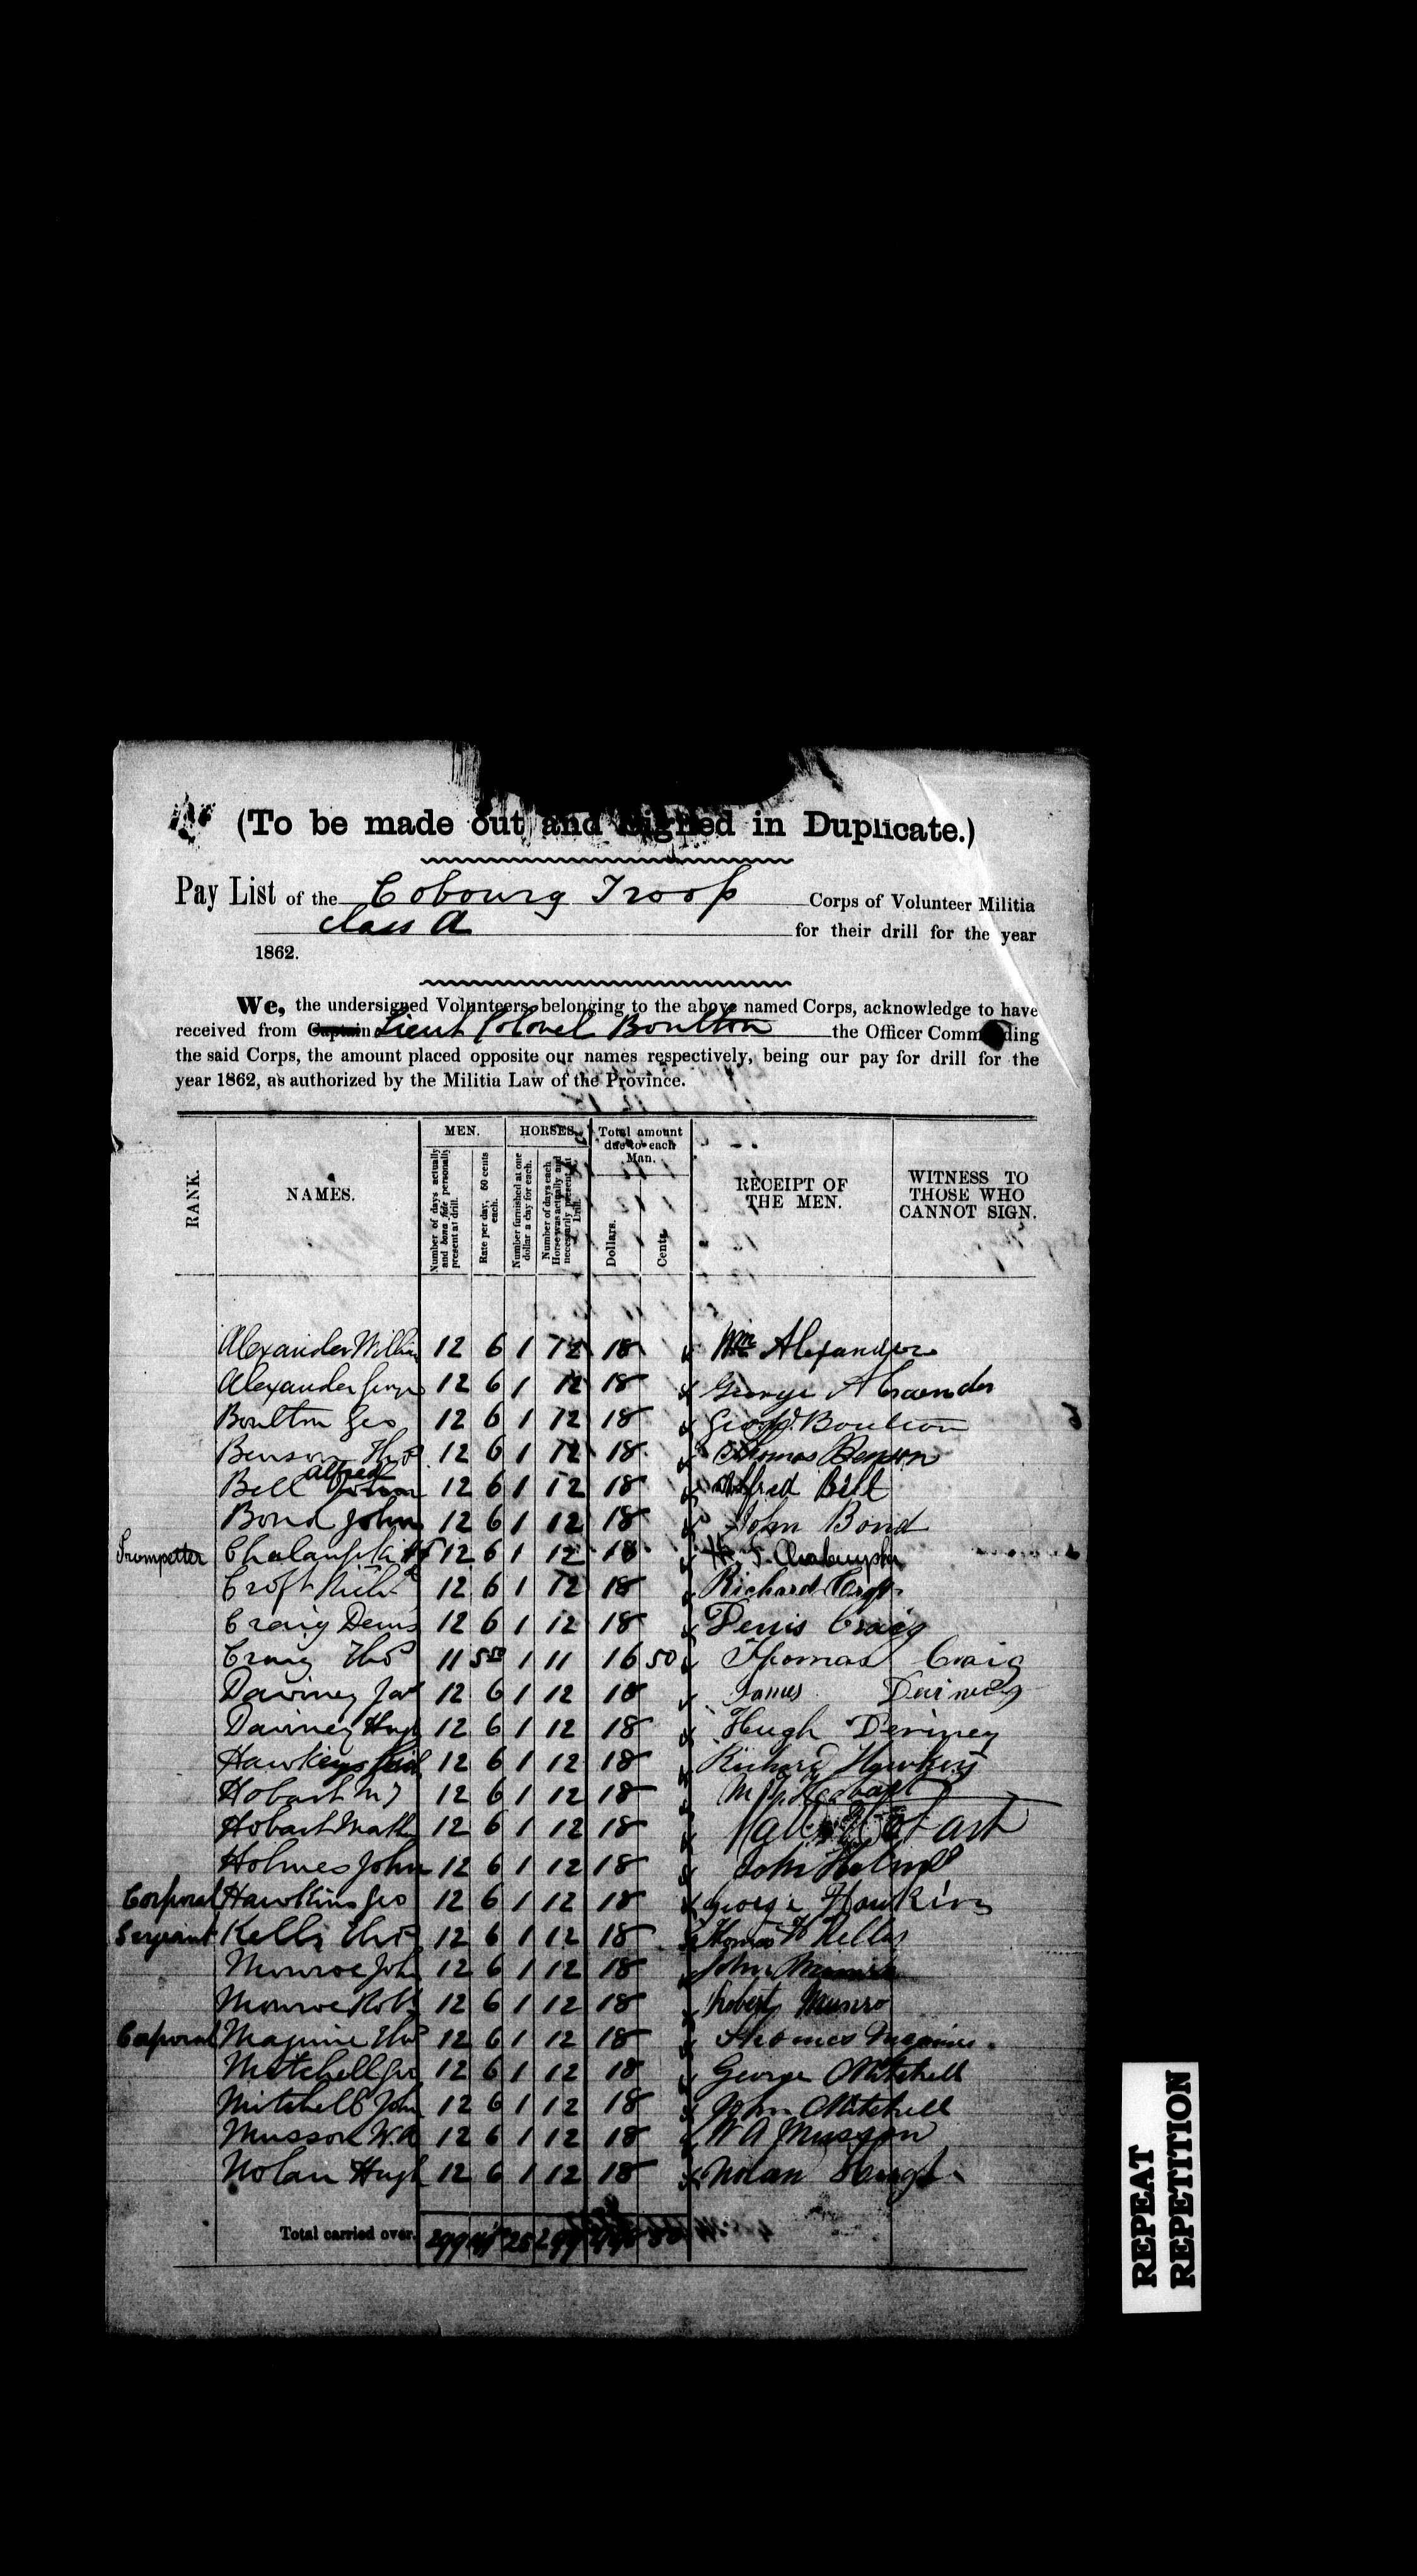 (To be made out and Signed in Duplicate.)
Pay List of the Cobourg Troop Corps of Volunteer Militia
Class A for their drill for the year
1862.
We, the undersigned Volunteers belonging to the above named Corps, acknowledge to have
received from Captain Lieut Colonel Boulton the Officer Commanding
the said Corps, the amount placed opposite our names respectively, being our pay for drill for the
year 1862, as authorized by the Militia Law of the Province.
RANK. NAMES. MEN. HORSES. Total amount due to each Man. RECEIPT OF THE MEN. WITNESS TO THOSE WHO CANNOT SIGN.
Number of days actually and bona fide personally present at drill. Rate per day, 60 cents each. Number furnished at one dollar a day for each. Number of days each Horse was actually and necessarily present at Drill. Dollars. Cents.
Alexander William 12 6 1 12 18 Wm Alexander
Alexander George 12 6 1 12 18 George Alexander
Boulton Geo 12 6 1 12 18 Boulton
Benson Thos 12 6 1 12 18 Thomas Benson
Bell Alfred 12 6 1 12 18 Alfred Bell
Bond John 12 6 1 12 18 John Bond
Trumpetter 12 6 1 12 18
Croft Richd 12 6 1 12 18 Richard Croft
Craig Denis 12 6 1 12 18 Denis Craig
Craig Thos 11 5 50 1 11 16 50 Thomas Craig
Dawney Jas 12 6 1 12 18 James
Dawney Hugh 12 6 1 12 18 Hugh
Hawkeys Rich 12 6 1 12 18 Richard Hawkeys
Hobart M J 12 6 1 12 18 Hobart
Hobart Math 12 6 1 12 18 Hobart
Holmes John 12 6 1 12 18 John Holmes
Corporal Hawkins Geo 12 6 1 12 18 George Hawkins
Sergeant Kells Thos 12 6 1 12 18 Thomas H Kells
Monroe John 12 6 1 12 18 John
Monroe Robt 12 6 1 12 18 Robert Munro
Corporal Maguire Thos 12 6 1 12 18 Thomas Maguire
Mitchell Geo 12 6 1 12 18 George Mitchell
Mitchell John 12 6 1 12 18 John Mitchell
Musson W.A 12 6 1 12 18 W A Musson
Nolan Hugh 12 6 1 12 18 Nolan Hugh
Total carried over. 299 25 299
REPEAT
REPETITION